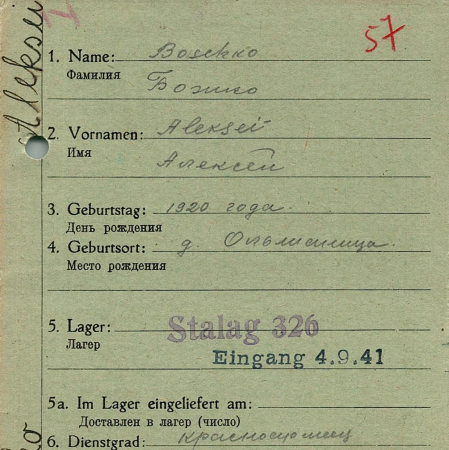 57
Aleksei
1. Name: Boschko
Фамилия Божко
2. Vornamen: Aleksei
Имя Алексей
3. Geburtstag: 1920 года.
День рождения
4. Geburtsort: д.
Место рождения
5. Lager: Stalag 326
Лагер Eingang 4.9.41
5a. Im Lager eingeliefert am:
Доставлен в лагер (число)
6. Dienstgrad: красноармеец